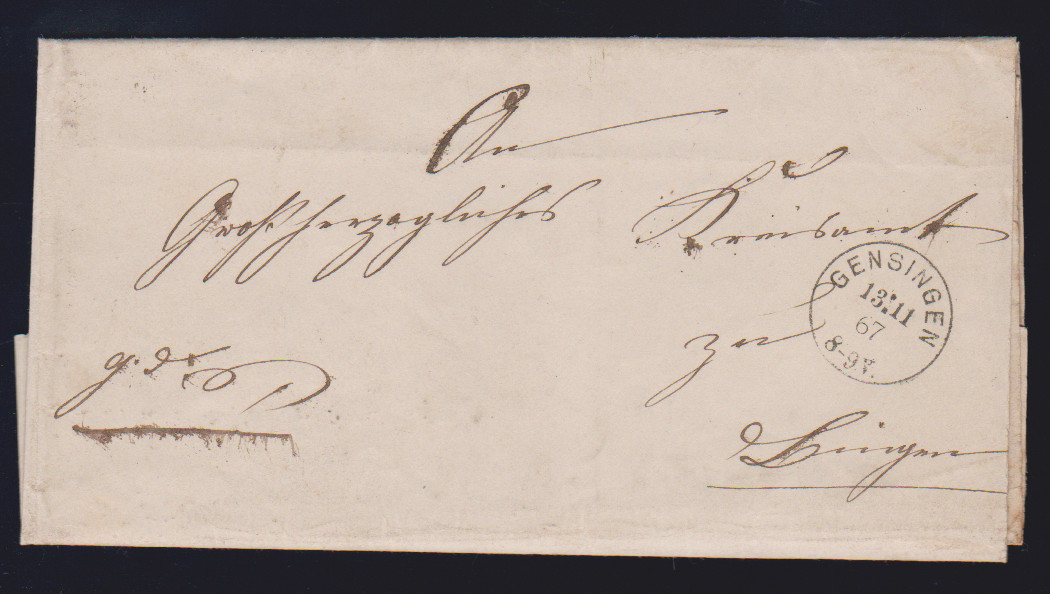 An
Großherzogliches Kreisamt
zu
Bingen
GENSINGEN
13.11
67
8-9V.